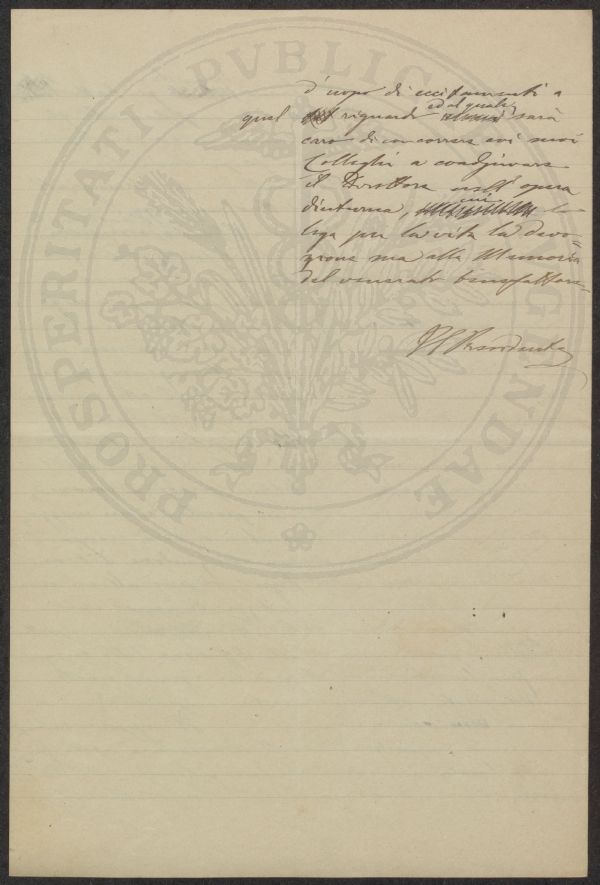 PROSPERITATI PVBLICAE AVGENDAE
d'uopo di eccitamenti a
ed al quale
qual riguardo sarà
caro di concorrere coi suoi
Colleghi a coadjuvare
il Direttore nell'opera
diuturna, cui lo
liga per la vita la devo-
zione ma alla Memoria
del venerato benefattore.
Il Presidente